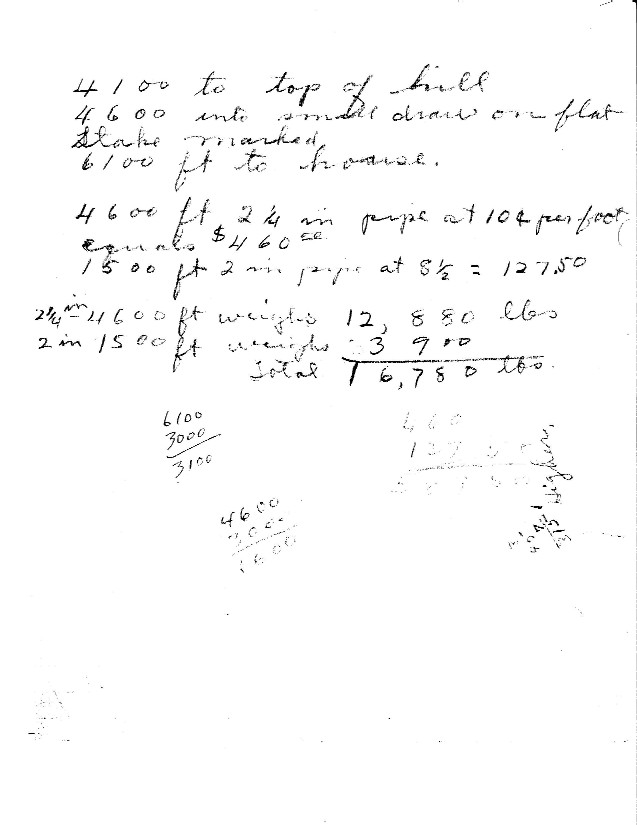 4100 to top of hill
4600 into small draw on flat
Stake marked
6100 ft to house.
4600 ft 2 1/4 in pipe at 10¢ per foot,
equals $460 00
1500 ft 2 in pipe at 8 1/2 = 127.50
2 1/4 in - 4600 ft weighs 12,880 lbs
2 in 1500 ft weighs 3900
Total 16,780 lbs.
6100
3000
3100
460
4600
3000
1600
Higher,